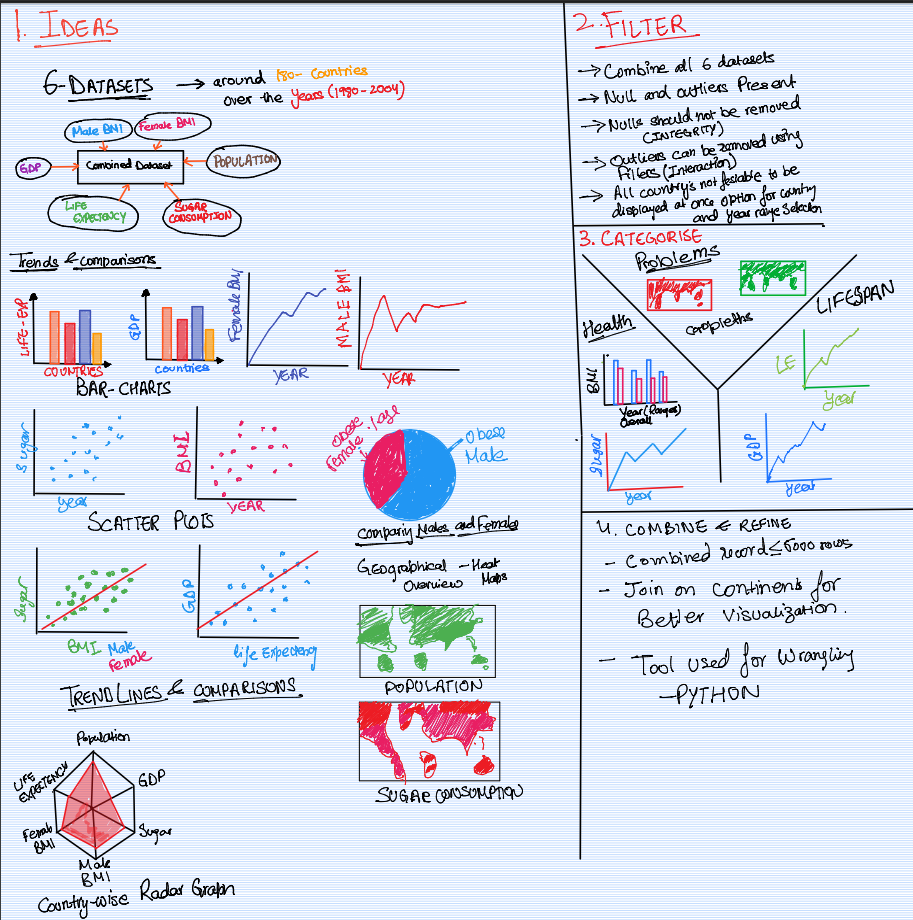 1. IDEAS
6-DATASETS → around 180- Countries
over the Years (1980-2004)
Male BMI
Female BMI
GDP
Combined Dataset
POPULATION
LIFE EXPECTENCY
SUGAR CONSUMPTION
Trends & comparisons
LIFE-EXP
COUNTRIES
GDP
Countries
Female BMI
YEAR
MALE BMI
YEAR
BAR-CHARTS
Sugar
year
BMI
YEAR
SCATTER PLOTS
Obese
Female
Obese
Male
Comparing Males and Females
Geographical - Heat
Overview Maps
Sugar
BMI Male
Female
GDP
life Expectency
TRENDLINES & COMPARISONS
POPULATION
SUGAR CONSUMPTION
Population
LIFE
EXPECTENCY
GDP
Female
BMI
Sugar
Male
BMI
Country-wise Radar Graph
2. FILTER
→ Combine all 6 datasets
→ Null and outliers Present
→ Nulls should not be removed
(INTEGRITY)
→ Outliers can be removed using
Filters (Interaction)
→ All country's not feasiable to be
displayed at once option for country
and year range Selection
3. CATEGORISE
Problems
Health
LIFESPAN
BMI
Year (Ranges)
Overall
LE
Year
Sugar
Year
GDP
Year
4. COMBINE & REFINE
- Combined record ≤ 5000 rows
- Join on Continents for
Better Visualization.
- Tool used for Wrangling
-PYTHON